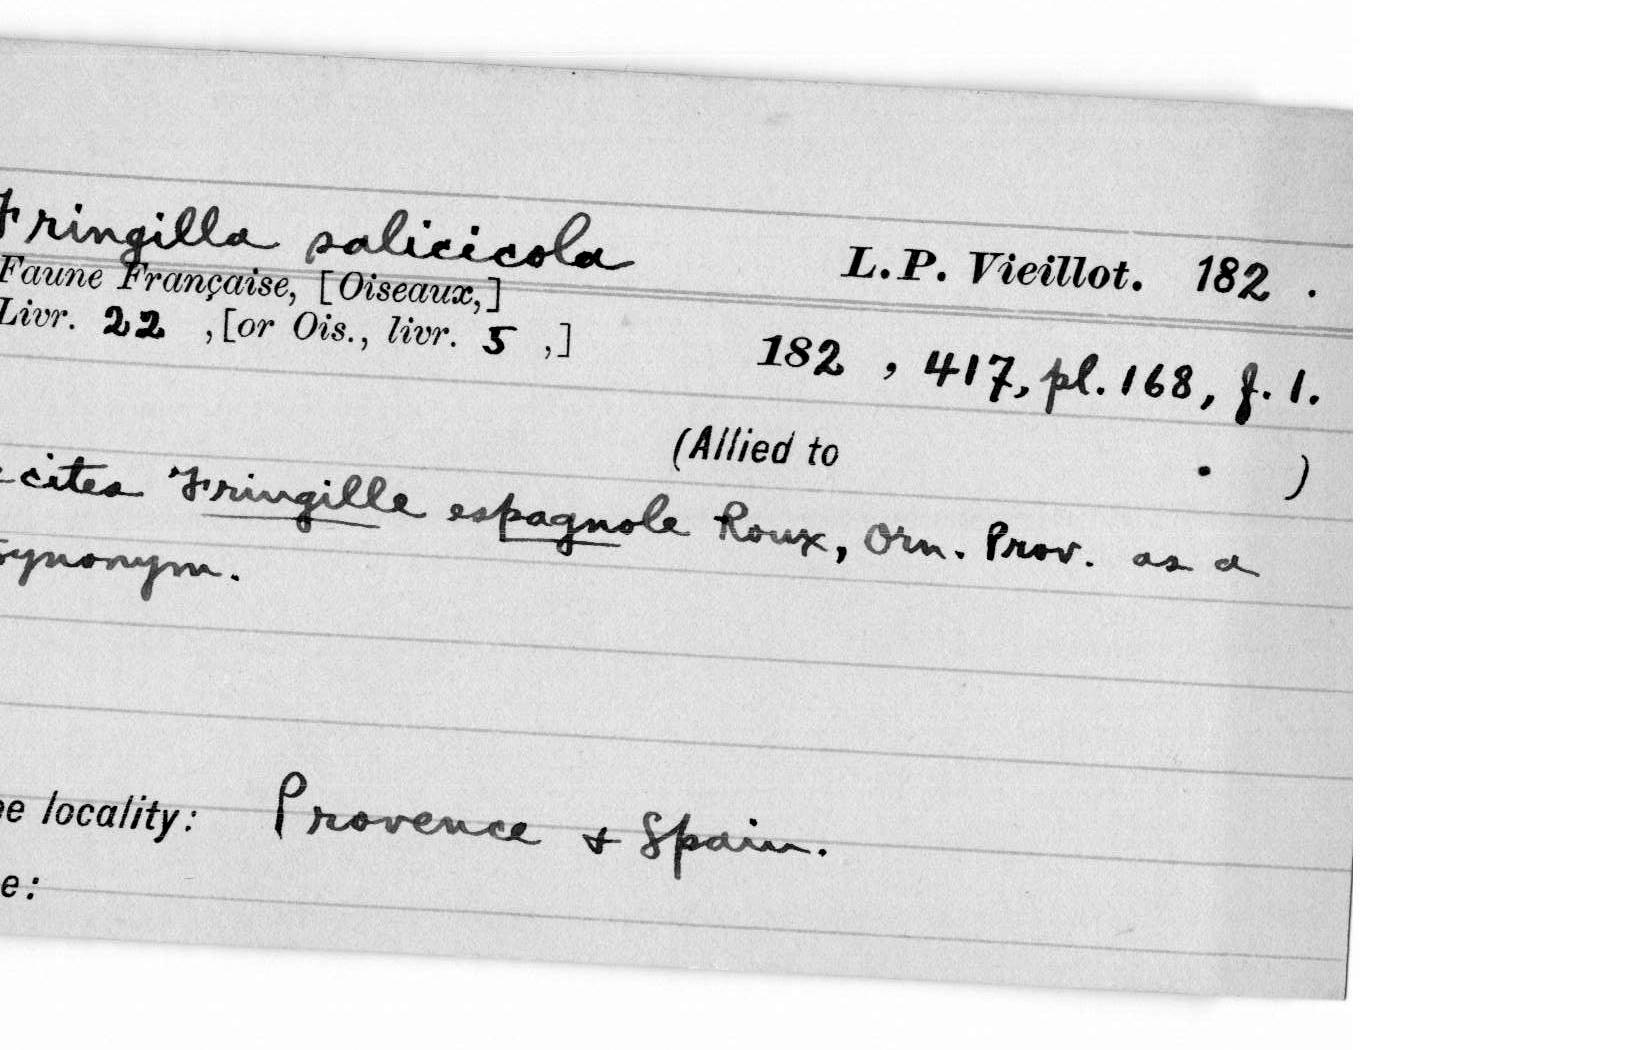 Fringilla salicicola
L.P. Vieillot. 182 .
Faune Française, [Oiseaux,]
Livr. 22 , [or Ois., livr. 5 ,] 182 , 417, pl. 168, f. 1.
(Allied to . )
cites Fringille espagnole Roux, Orn. Prov. as a
synonym.
pe locality: Provence & Spain.
e: